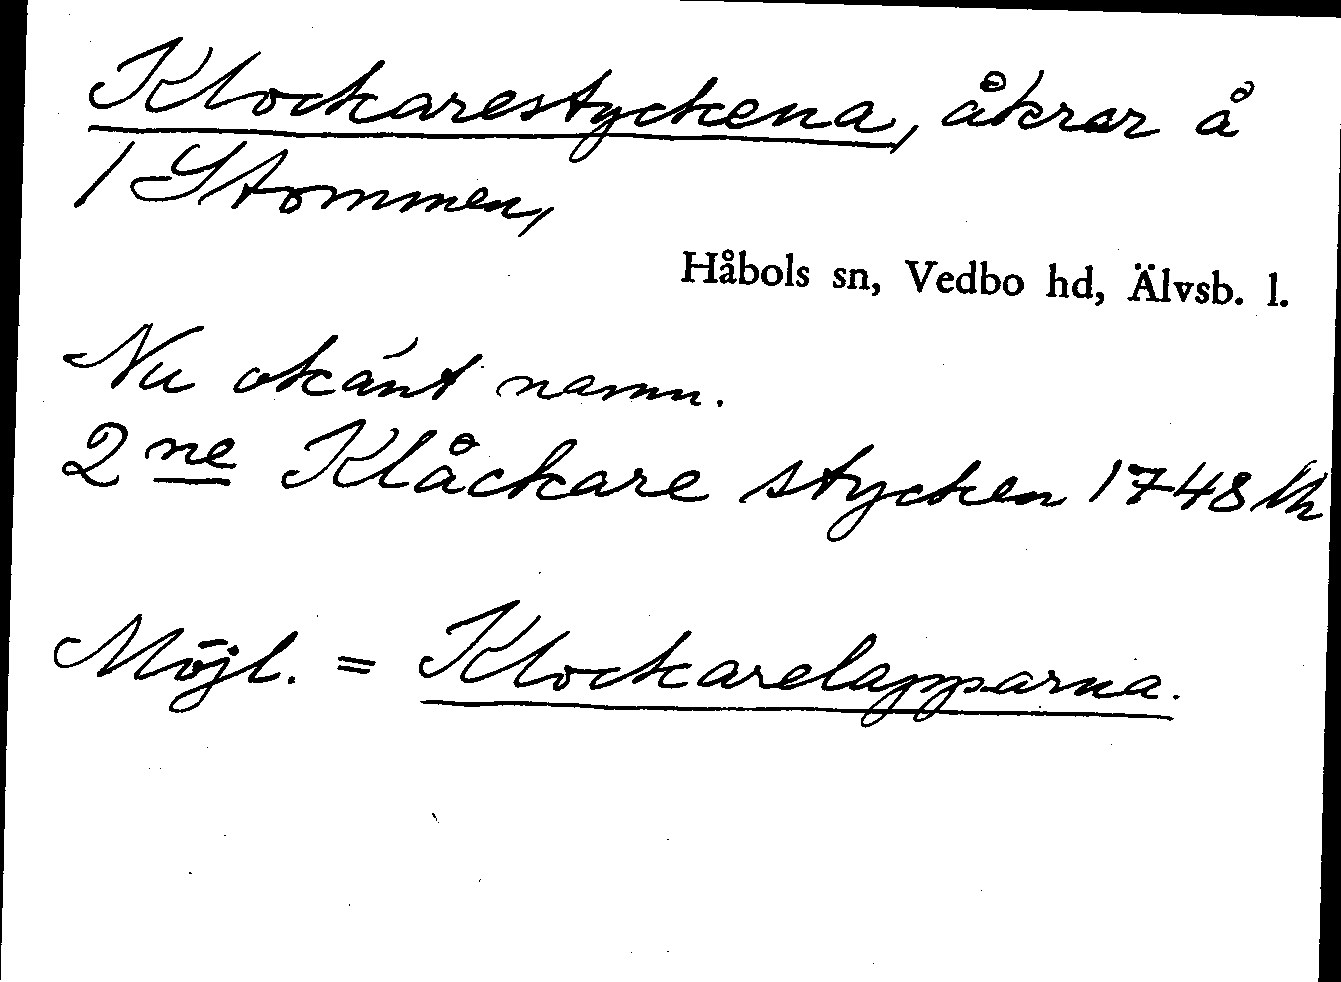 Klockarestyckena, åkrar å
1 Stommen,
Håbols sn, Vedbo hd, Älvsb. l.
Nu okänt namn.
2ne Klåckare stycken 1748 lh
Möjl. = Klockarelapparna.